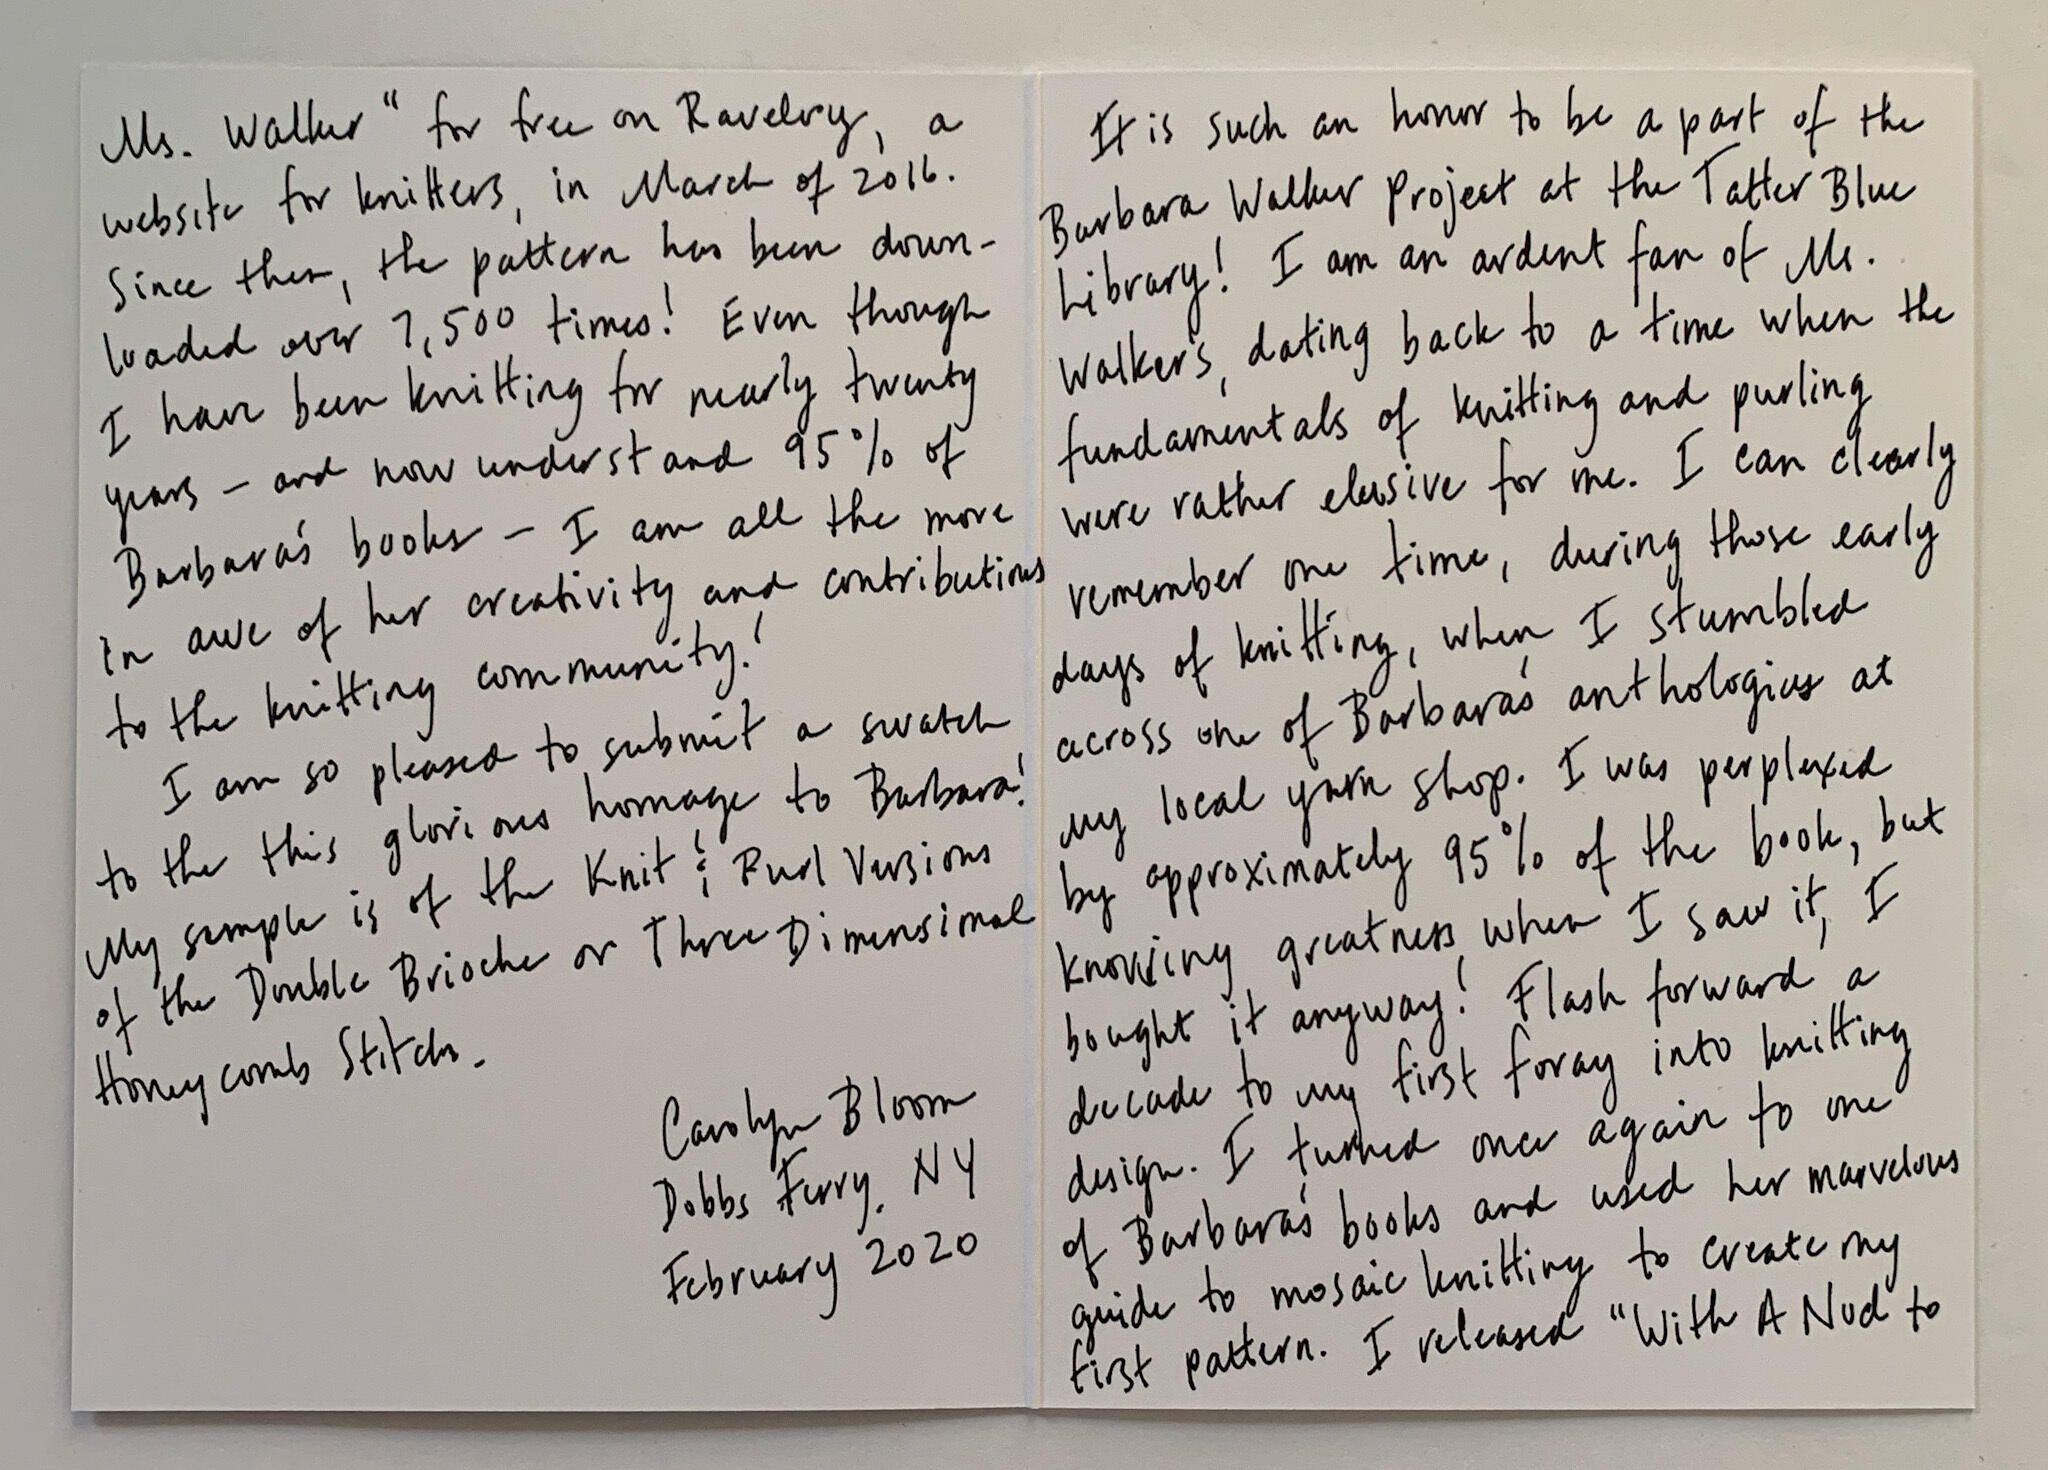 It is such an honor to be a part of the
Barbara Walker Project at the Tatter Blue
Library! I am an ardent fan of Ms.
Walker's, dating back to a time when the
fundamentals of knitting and purling
were rather elusive for me. I can clearly
remember one time, during those early
days of knitting, when I stumbled
across one of Barbara's anthologies at
my local yarn shop. I was perplexed
by approximately 95% of the book, but
knowing greatness when I saw it, I
bought it anyway! Flash forward a
decade to my first foray into knitting
design. I turned once again to one
of Barbara's books and used her marvelous
guide to mosaic knitting to create my
first pattern. I released "With A Nod to
Ms. Walker" for free on Ravelry, a
website for knitters, in March of 2016.
Since then, the pattern has been down-
loaded over 7,500 times! Even though
I have been knitting for nearly twenty
years – and now understand 95% of
Barbara's books – I am all the more
in awe of her creativity and contributions
to the knitting community!
I am so pleased to submit a swatch
to the this glorious homage to Barbara!
My sample is of the Knit & Purl Versions
of the Double Brioche or Three Dimensional
Honeycomb Stitch.
Carolyn Bloom
Dobbs Ferry, NY
February 2020